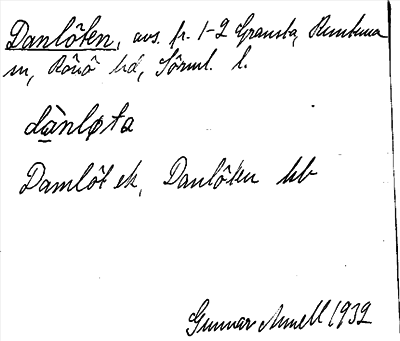 Danlöten, avs. fr. 1-2 Gransta, Runtuna
sn, Rönö hd, Sörml. l.
dànløta
Damlöt ek, Danlöten kb
Gunnar Annell 1939